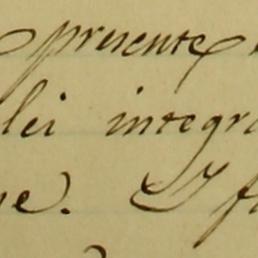 presente
lei integra
ne. I f